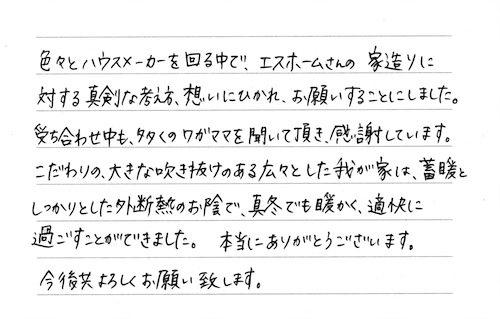 色々とハウスメーカーを回る中で、エスホームさんの 家造りに
対する真剣な考え方、想いにひかれ、お願いすることにしました。
受ち合わせ中も、タタくのワガママを聞いて頂き、感謝しています。
こだわりの、大きな吹き抜けのある広々とした我が家は、蓄暖と
しっかりとした外断熱のお陰で、真冬でも暖かく、適快に
過ごすことができました。 本当にありがとうございます。
今後共よろしくお願い致します。